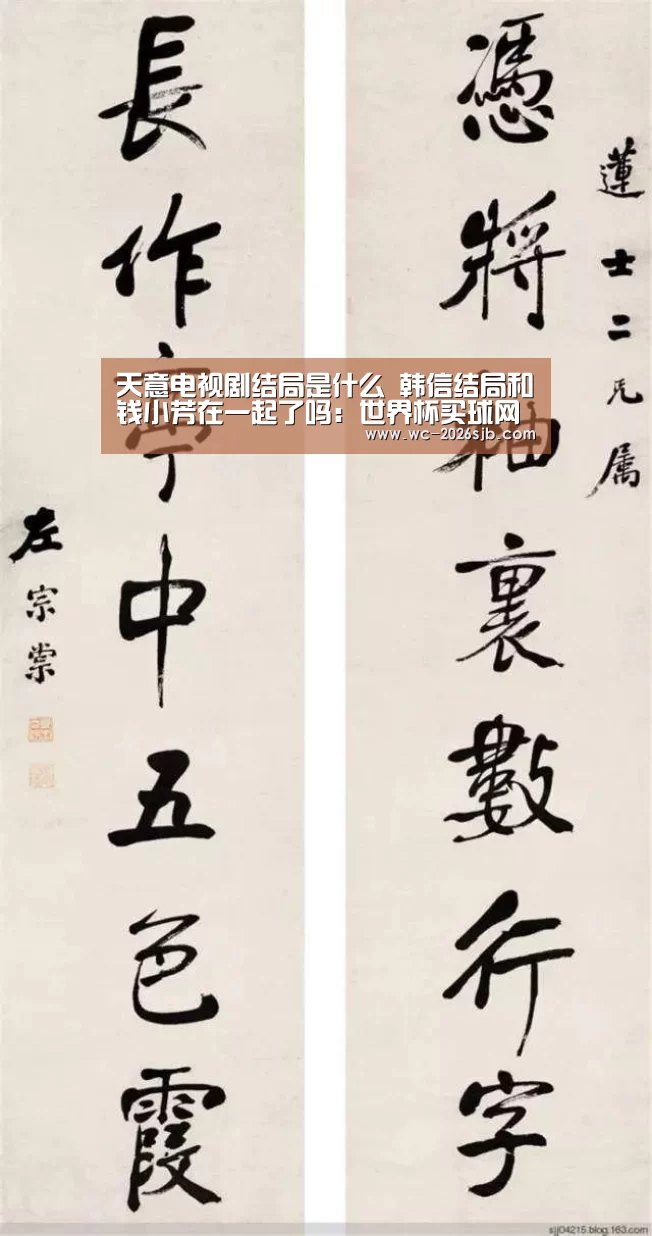 蓮士二兄属
憑將袖裏數行字
長作亭中五色霞
左宗棠
天意电视剧结局是什么 韩信结局和
钱小芳在一起了吗：世界杯买球网
www.wc-2026sjb.com
sjj04215.blog.163.com